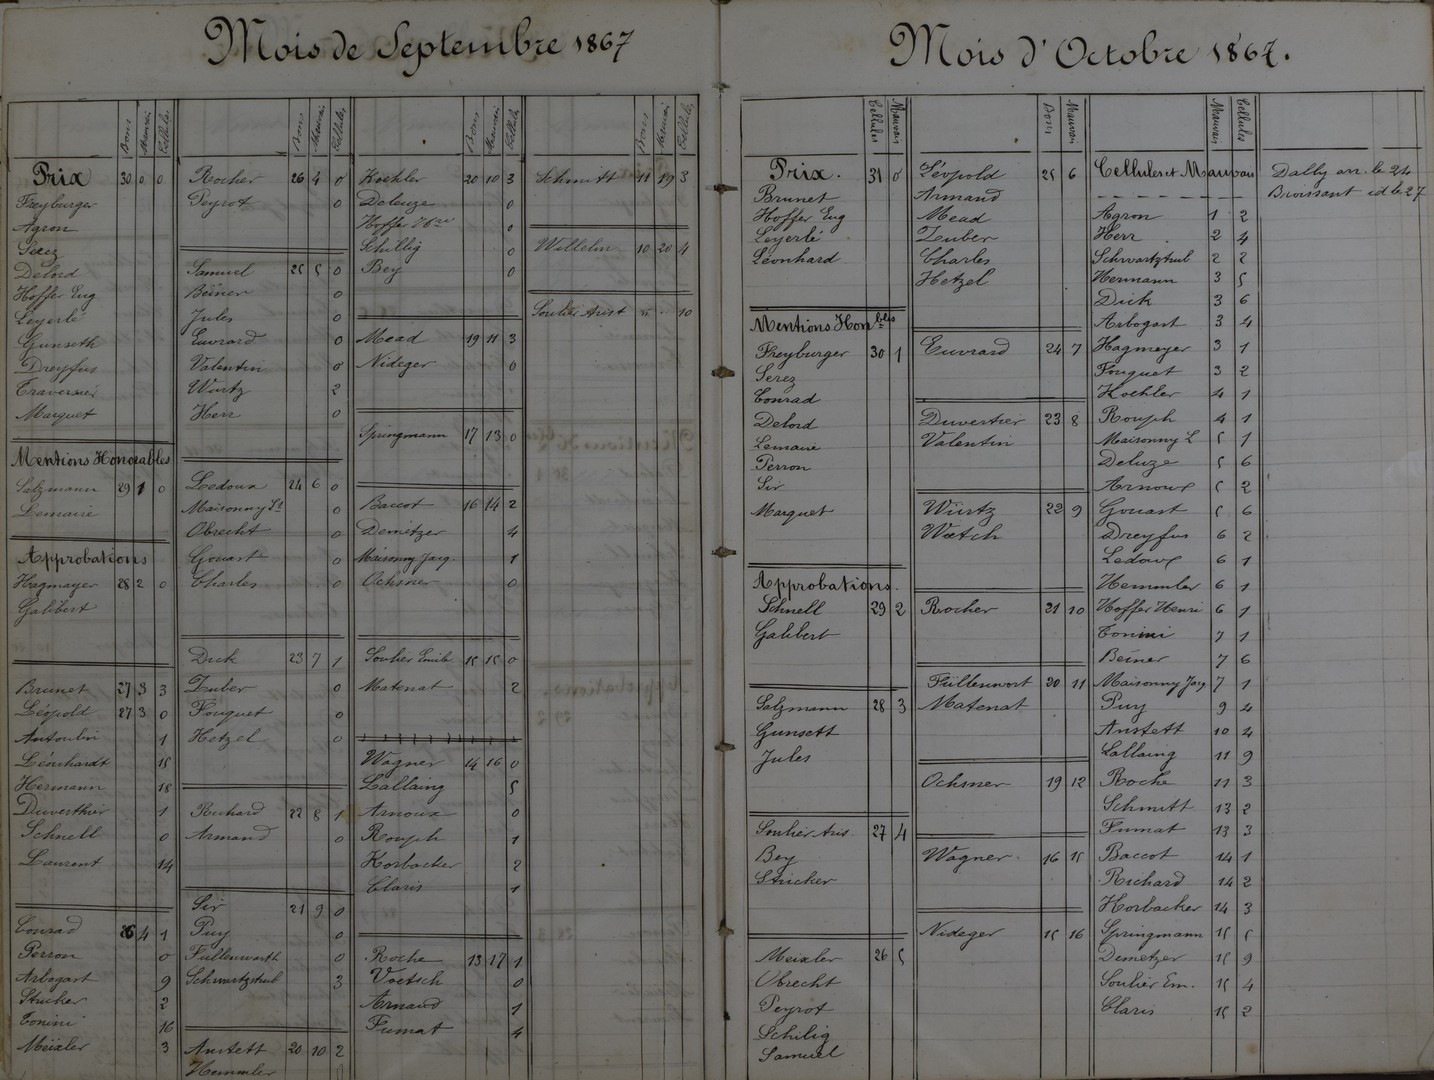 Mois de Septembre 1867
Bons Mauvais Cellules
Prix 30 0 0
Freyburger
Agron
Serez
Delord
Hoffer Eug
Leyerlé
Gunseth
Dreyfus
Traversié
Marquet
Mentions Honorables
Salzmann 29 1 0
Lemaire
Approbations
Hagmayer 28 2 0
Galibert
Brunet 27 3 3
Léopold 27 3 0
Antoulin 1
Léonhardt 15
Hermann 18
Duverthier 1
Schnell 0
Laurent 14
Conrad 26 4 1
Perron 0
Arbogart 9
Stricker 2
Tonini 16
Meixler 3
Bons Mauvais Cellules
Rocher 26 4 0
Peyrot 0
Samuel 25 5 0
Beiner 0
Jules 0
Euvrard 0
Valentin 0
Wurtz 2
Herr 0
Ledoux 24 6 0
Maisonny Lt 0
Obrecht 0
Gouast 0
Charles 0
Dick 23 7 1
Zuber 0
Fouquet 0
Hetzel 0
Richard 22 8 1
Armand 0
Sir 21 9 0
Puy 0
Fullenwarth 0
Schwartztrub 3
Anstett 20 10 2
Hemmler
Bons Mauvais Cellules
Koehler 20 10 3
Deleuze 0
Hoffer Hri 0
Schillig 0
Bey 0
Mead 19 11 3
Nideger 0
Springmann 17 13 0
Baccot 16 14 2
Demetzer 4
Maisonny Jacq. 1
Ochsner 0
Soulier Emile 15 15 0
Matenat 2
Wagner 14 16 0
Lallaing 5
Arnoux 0
Rouph 1
Horbacker 2
Claris 1
Roche 13 17 1
Voetsch 0
Arnaud 1
Fumat 4
Bons Mauvais Cellules
Schmitt 11 19 3
Willelm 10 20 4
Soulier Arist " . 10
Mois d'Octobre 1867.
Cellules Mauvais
Prix. 31 0
Brunet
Hoffer Eug
Leyerlé
Léonhard
Mentions Honbles
Freyburger 30 1
Serez
Conrad
Delord
Lemaire
Perron
Sir
Marquet
Approbations.
Schnell 29 2
Galibert
Salzmann 28 3
Gunsett
Jules
Soulier Aris. 27 4
Bey
Stricker
Meixler 26 5
Obrecht
Peyrot
Schilig
Samuel
Bons Mauvais
Léopold 25 6
Armand
Mead
Zuber
Charles
Hetzel
Euvrard 24 7
Duvertier 23 8
Valentin
Würtz 22 9
Wœtch
Rocher 21 10
Füllenwort 20 11
Matenat
Ochsner 19 12
Wagner. 16 15
Nideger 15 16
Mauvais Cellules
Cellules et Mauvais
Agron 1 2
Herr . 2 4
Schwartztrub 2 2
Hermann 3 5
Dick 3 6
Arbogart 3 4
Hagmeyer 3 1
Fouquet 3 2
Koehler 4 1
Rouph 4 1
Maisonny L 5 1
Deluze 5 6
Arnoux 5 2
Gouast 5 6
Dreyfus 6 2
Ledoux 6 1
Hemmler 6 1
Hoffer Henri 6 1
Tonini 7 1
Beiner 7 6
Maisonny Jacq 7 1
Puy 9 4
Anstett 10 4
Lallaing 11 9
Roche 11 3
Schmitt 13 2
Fumat 13 3
Baccot 14 1
Richard 14 2
Horbacker 14 3
Springmann 15 5
Demetzer 15 9
Soulier Em. 15 4
Claris 15 2
Dalby arr. le 24
Broissant id le 27